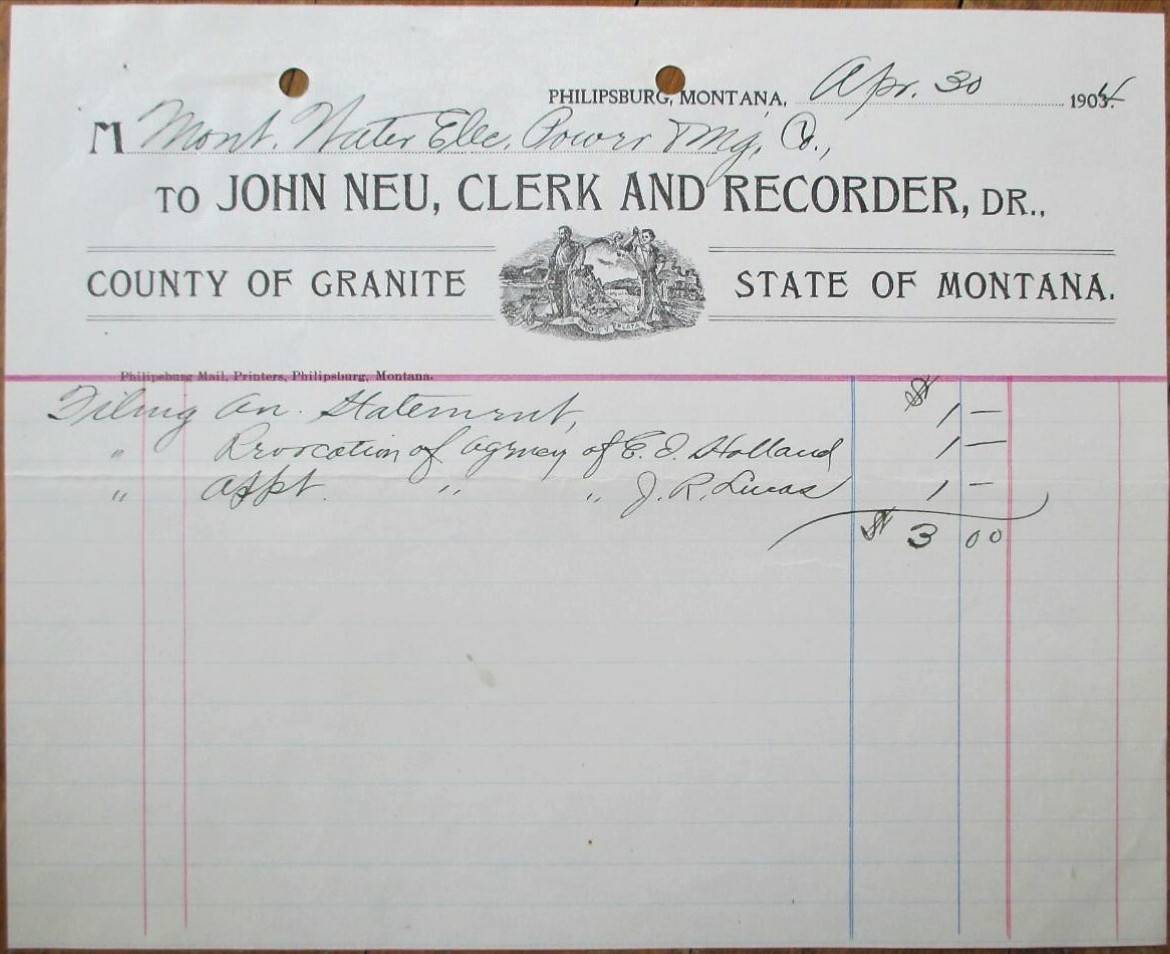 PHILIPSBURG, MONTANA, Apr. 30 1904
M Mont. Water Elec. Power & Mg. Co.,
TO JOHN NEU, CLERK AND RECORDER, DR.,
COUNTY OF GRANITE STATE OF MONTANA.
Philipsburg Mail, Printers, Philipsburg, Montana.
Filing An. Statement, $ 1 —
" Revocation of agency of E. I. Holland 1 —
" Appt. " " J. R. Lucas 1 —
$ 3 00